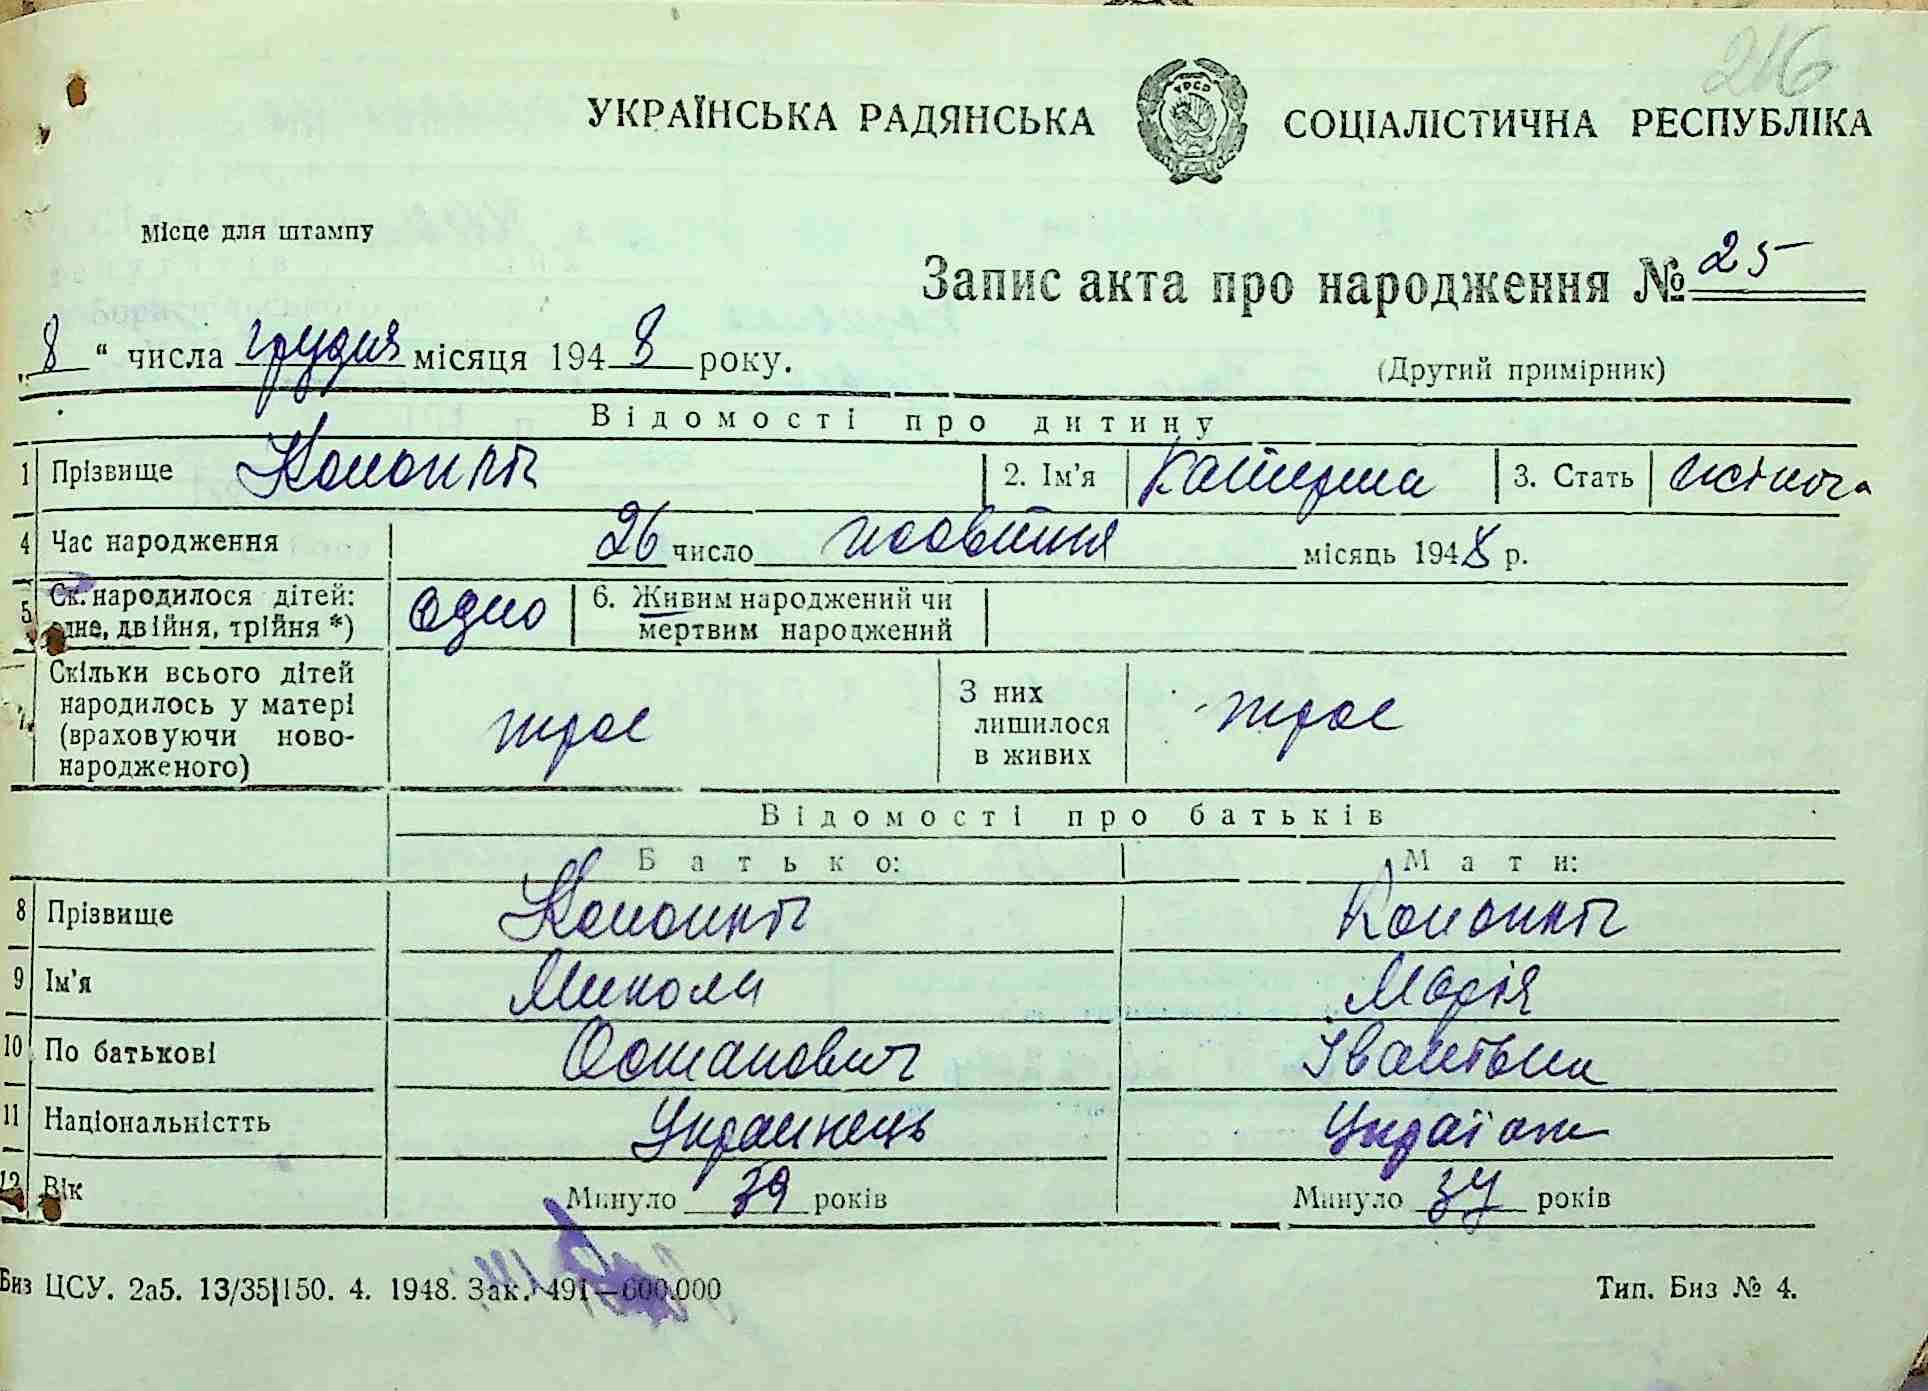 216
УКРАЇНСЬКА РАДЯНСЬКА СОЦІАЛІСТИЧНА РЕСПУБЛІКА
УРСР
Місце для штампу
Запис акта про народження № 25
„8“ числа грудня місяця 1948 року.
(Другий примірник)
Відомості про дитину
1 Прізвище 2. Ім'я Катерина 3. Стать жіноча
4 Час народження 26 число місяць 1948 р.
5 Ск. народилося дітей: одне, двійня, трійня *) одно 6. Живим народжений чи мертвим народжений
7. Скільки всього дітей народилось у матері (враховуючи ново-народженого) троє З них лишилося в живих троє
Відомості про батьків
Батько: Мати:
8 Прізвище
9 Ім'я Микола Марія
10 По батькові Остапович Івантьна
11 Національністть Украинець
12 Вік Минуло 39 років Минуло 34 років
Биз ЦСУ. 2а5. 13/35|150. 4. 1948. Зак. 491—600.000 Тип. Биз № 4.